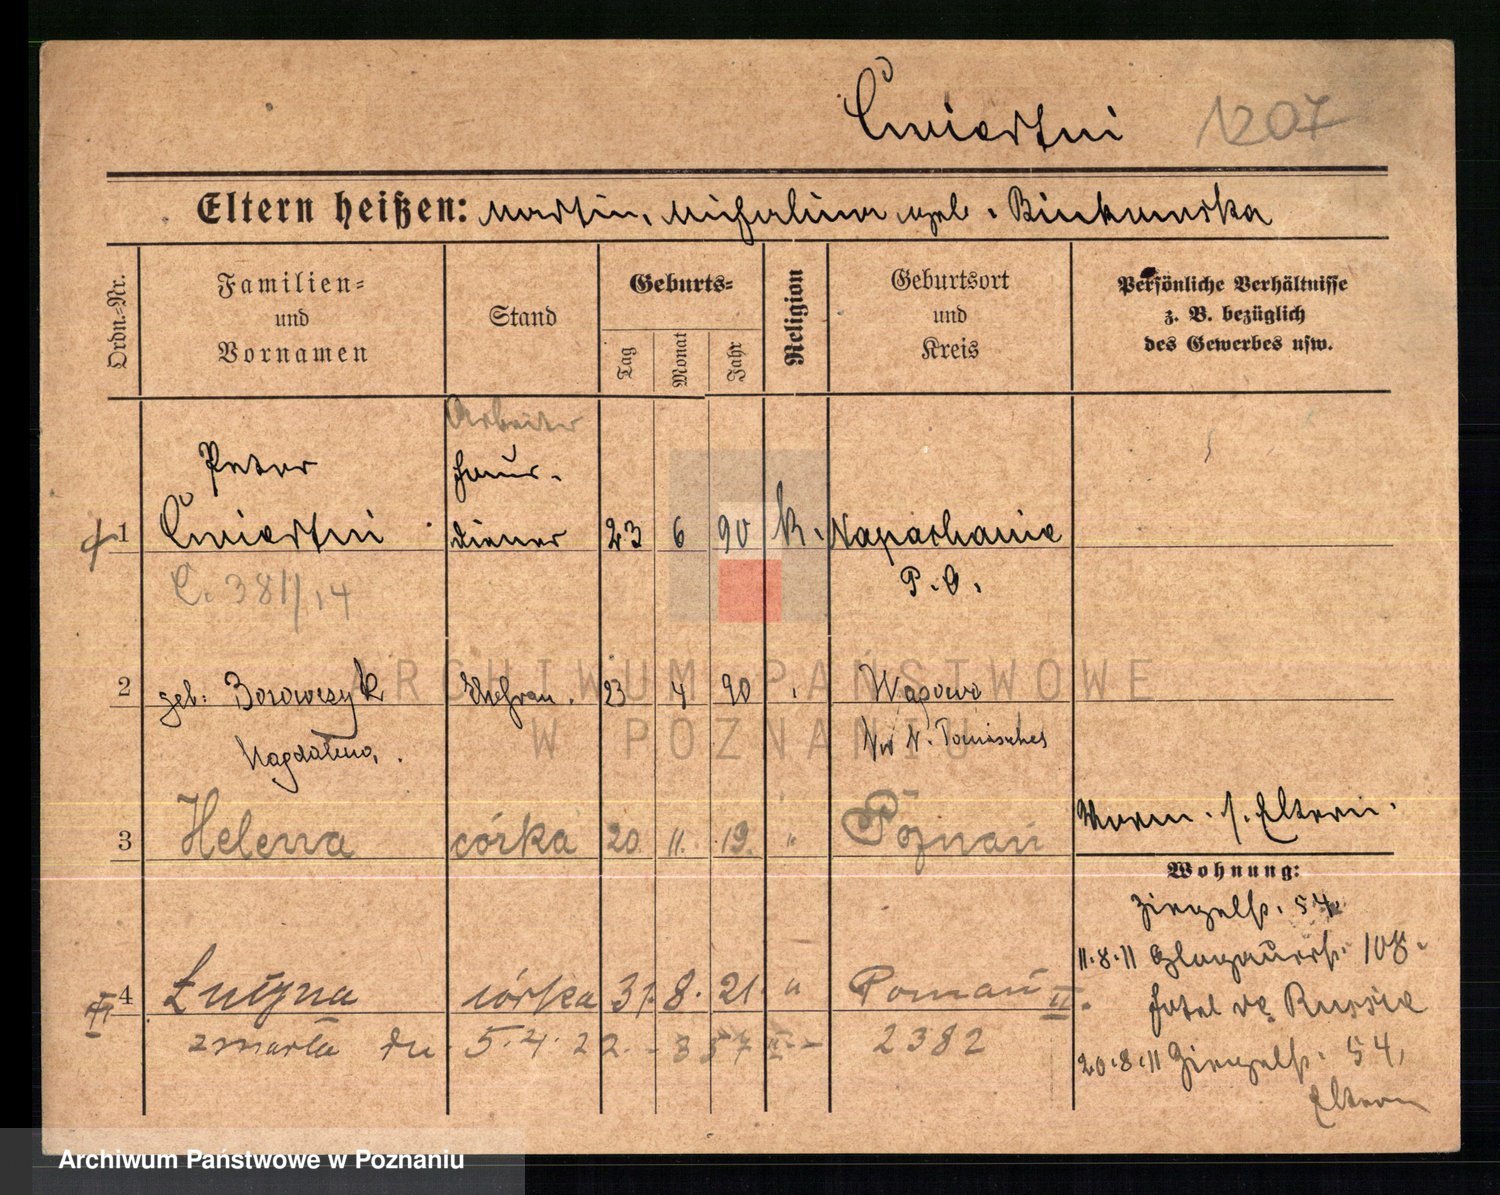 Ćwiertni 1207
Eltern heißen: Martin, Michalina geb. Binkowska
Ordn.-Nr.
Familien-
und
Vornamen
Stand
Geburts-
Tag
Monat
Jahr
Religion
Geburtsort
und
Kreis
Persönliche Verhältnisse
z. B. bezüglich
des Gewerbes usw.
Arbeiter
Peter Haus-
1 Ćwiertni diener 23 6 90 k. Napachanie
C. 381/14 P. O.
2 geb: Borowczyk Ehefrau. 23 4 90 Wąsowo
Magdalena, N. Tomischel
3 Helena córka 20. 11. 19. " Poznań
Eltern.
Wohnung:
Ziegelstr. 54,
11.8.11 Glogauerstr. 108.
Hotel de Russie
20.8.11 Ziegelstr. 54,
Eltern
4 Łucyna córka 31. 8. 21. " Poznań II
zmarła dn. 5.4.22. - 357 II - 2382
ARCHIWUM PAŃSTWOWE
W POZNANIU
Archiwum Państwowe w Poznaniu